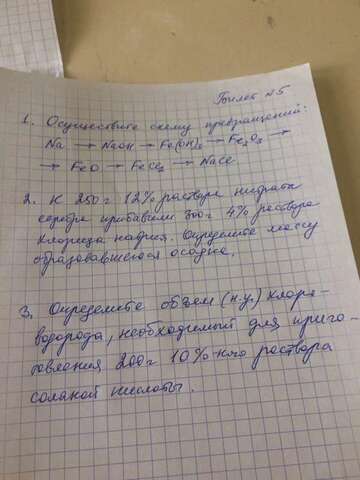 Билет №5
1. Осуществите схему превращений:
Na → NaOH → Fe(OH)3 → Fe2O3 →
→ FeO → FeCl2 → NaCl
2. К 250 г 12% раствора нитрата
серебра прибавили 300г 4% раствора
хлорида натрия. Определите массу
образовавшегося осадка.
3. Определите объем (н.у.) хлоро-
водорода, необходимый для приго-
товления 200г 10%-ного раствора
соляной кислоты.